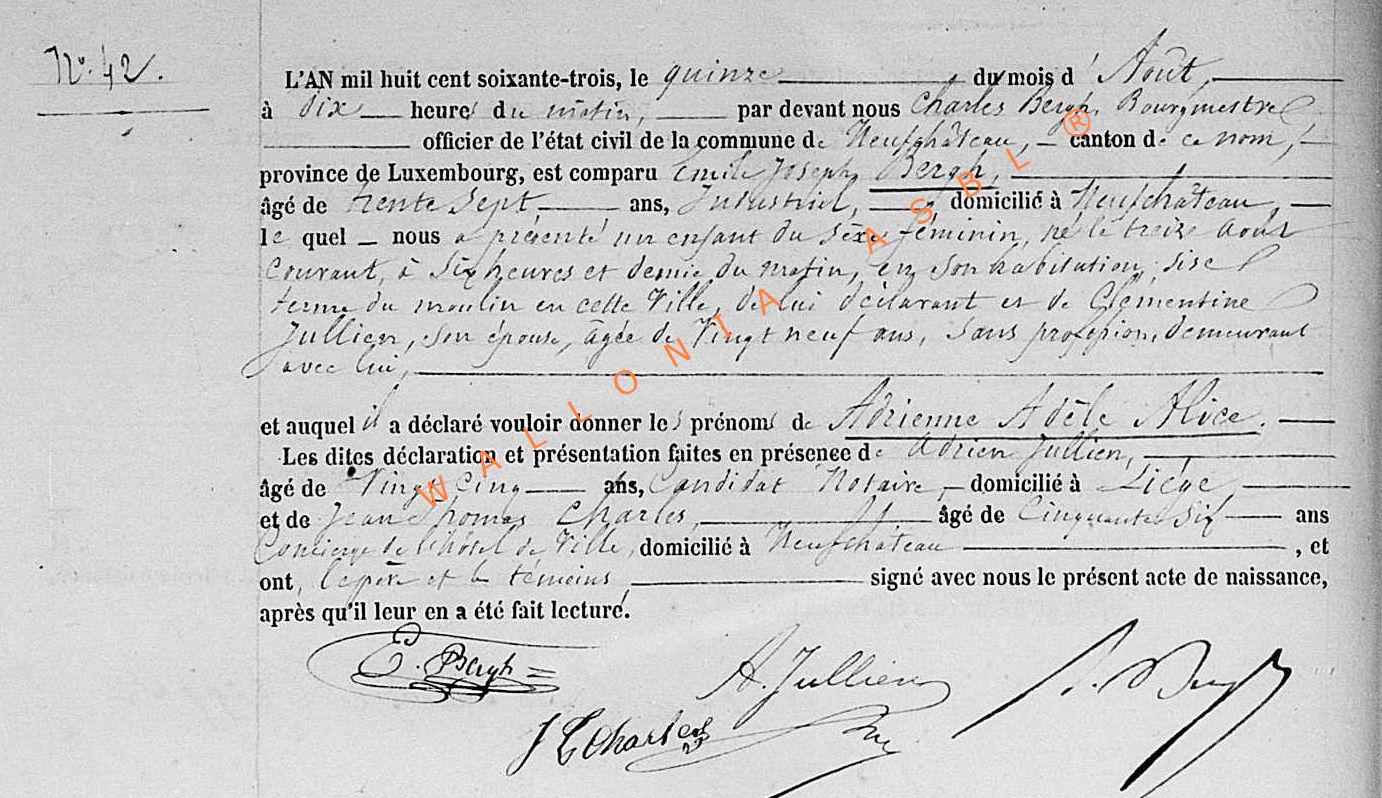 N° 42.
L'AN mil huit cent soixante-trois, le quinze du mois d' Août,
à dix heures du matin, par devant nous Charles Bergh, Bourgmestre
officier de l'état civil de la commune de Neufchâteau, canton de ce nom,
province de Luxembourg, est comparu Emile Joseph Bergh,
âgé de trente sept ans, Industriel, domicilié à Neufchâteau,
le quel nous a présenté un enfant du sexe féminin, né le treize Août
courant, à Six heures et demie du matin, en son habitation, sise
ferme du moulin en cette Ville, de lui déclarant et de Clémentine
Jullien, son épouse, âgée de Vingt neuf ans, Sans profession, demeurant
avec lui,
et auquel il a déclaré vouloir donner les prénoms de Adrienne Adèle Alice.
Les dites déclaration et présentation faites en présence de Adrien Jullien,
âgé de Vingt Cinq ans, Candidat Notaire, domicilié à Liége,
et de Jean Thomas Charles, âgé de Cinquante Six ans
Concierge de l'hôtel de Ville, domicilié à Neufchateau, et
ont, le père et les témoins signé avec nous le présent acte de naissance,
après qu'il leur en a été fait lecture.
E. Bergh
A. Jullien
J T Charles
WALLONIA ASBL ®